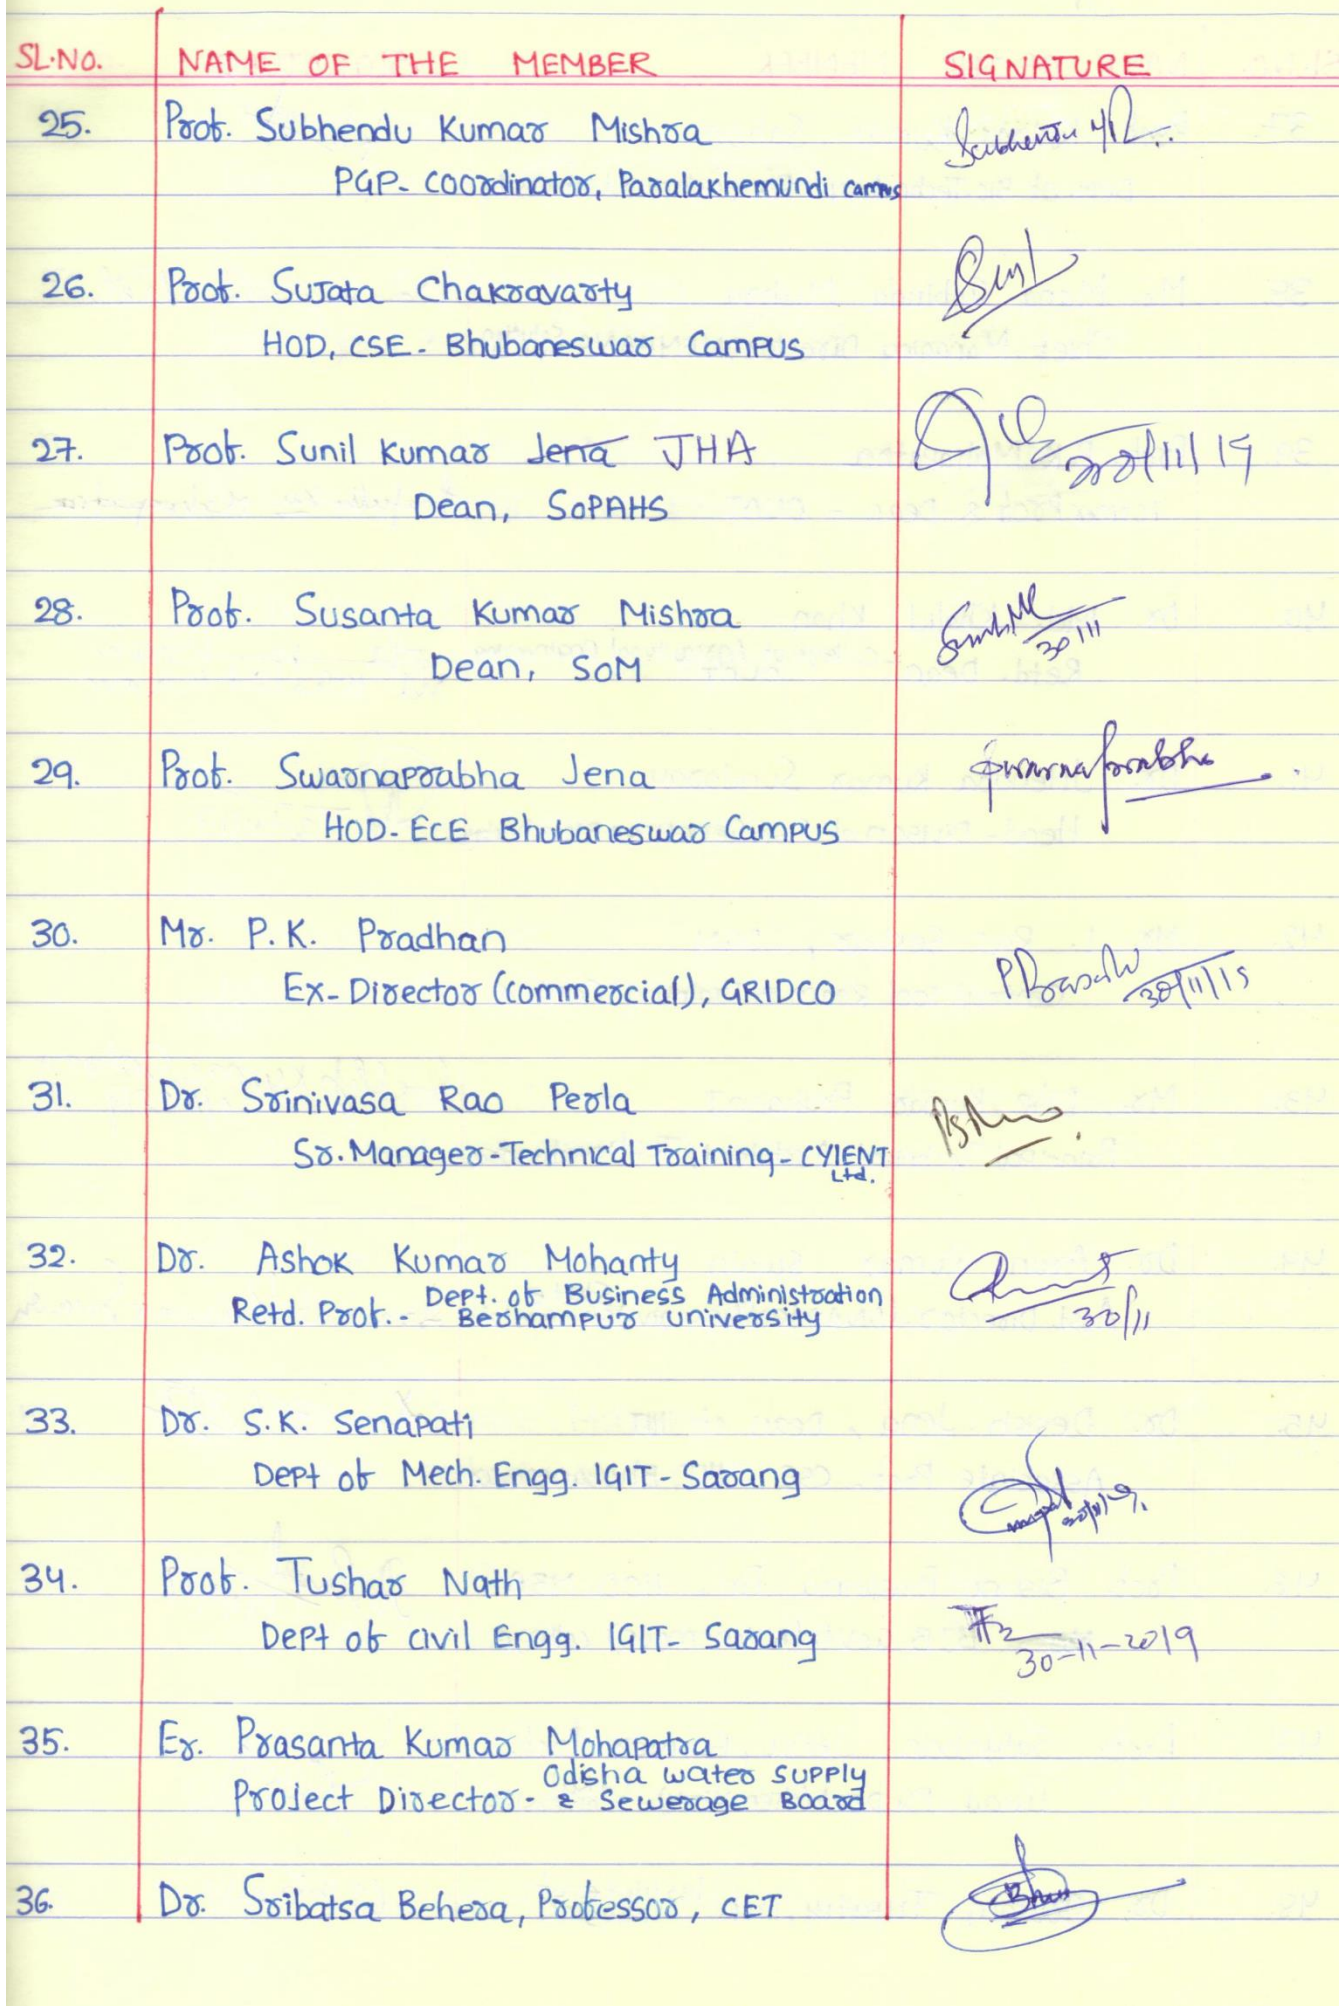 SL.NO. NAME OF THE MEMBER SIGNATURE
25. Prof. Subhendu Kumar Mishra
PGP- Coordinator, Paralakhemundi campus
26. Prof. Sujata Chakravarty
HOD, CSE- Bhubaneswar Campus
27. Prof. Sunil Kumar Jena JHA 30/11/19
Dean, SoPAHS
28. Prof. Susanta Kumar Mishra
30/11
Dean, SoM
29. Prof. Swarnaprabha Jena Swarnaprabha
HOD-ECE Bhubaneswar Campus
30. Mr. P.K. Pradhan
Ex-Director (commercial), GRIDCO 30/11/19
31. Dr. Srinivasa Rao Perla
Sr. Manager-Technical Training- CYIENT
Ltd.
32. Dr. Ashok Kumar Mohanty
Dept. of Business Administration
Retd. Prof.- Berhampur University 30/11
33. Dr. S.K. Senapati
Dept of Mech. Engg. IGIT-Sarang
34. Prof. Tushar Nath
Dept of civil Engg. IGIT- Sarang 30-11-2019
35. Er. Prasanta Kumar Mohapatra
Odisha water supply
Project Director- & Sewerage Board
36. Dr. Sribatsa Behera, Professor, CET